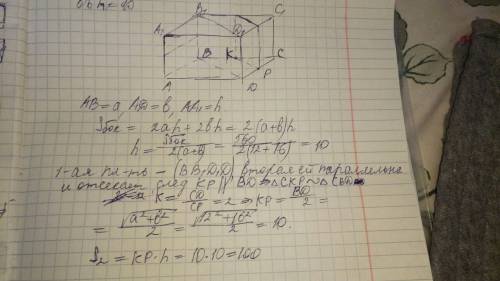 B₁ C₁
A₁ D₁
B K C
P
A D
AB = a, AD = b, AA₁ = h
Sбок = 2ah + 2bh = 2(a+b)h
h = Sбок / 2(a+b) = 560 / 2(12+16) = 10
1-ая пл-ть – (BB₁D₁D) вторая ей параллельна
и отсекает след KP || BD ⇒ △CKP ~ △CBD
K = CD / CP = 2 ⇒ KP = BD / 2 =
= √a²+b² / 2 = √12²+16² / 2 = 10.
S₂ = KP · h = 10 · 10 = 100